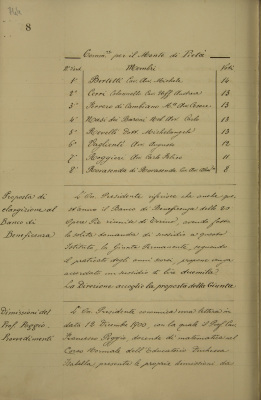 8
Comm.ne per il Monte di Pietà
Membri
Voti
1° Bertetti Cav. Avv. Michele 14
2° Corri Colonnello Cav. Uff. Andrea 13
3° 13
4° 13
5° Rovetti Dott. Michelangelo 13
6° Paglianti Avv. Augusto 12
7° Roggieri Avv. Carlo Felice 11
8° 8
Proposta di
elargizione al
Banco di
Beneficenza
L'On. Presidente riferisce che anche que-
st'anno il Banco di Beneficenza delle 20
Opere Pie riunite di Torino, avendo fatto
la solita domanda di sussidio a questo
Istituto, la Giunta Permanente, seguendo
il praticato degli anni scorsi, propone venga
accordato un sussidio di lire duemila.
La Direzione accoglie la proposta della Giunta.
Dimissioni del
Prof. Poggio.
Provvedimenti
L'On. Presidente comunica una lettera in
data 12 Dicembre 1900, con la quale il Prof. Cav.
Francesco Poggio, docente di matematica nel
Corso Normale dell'Educatorio Duchessa
Isabella, presenta le proprie dimissioni da